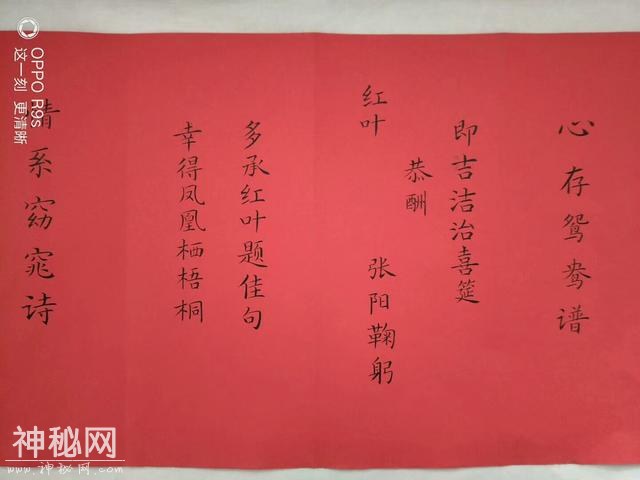 心存鸳鸯谱
即吉洁治喜筵
恭酬
红叶
张阳鞠躬
多承红叶题佳句
幸得凤凰栖梧桐
情系窈窕诗
OPPO R9s
这一刻 更清晰
神秘网
www.神秘网.com